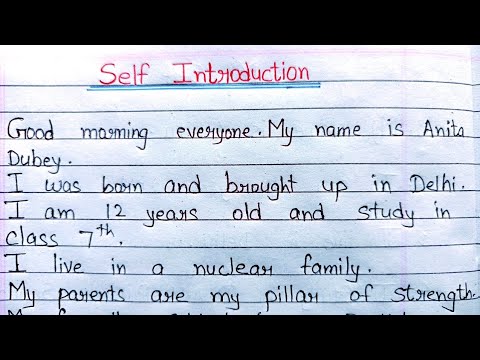 Self Introduction
Good morning everyone. My name is Anita
Dubey.
I was born and brought up in Delhi.
I am 12 years old and study in
class 7th.
I live in a nuclear family.
My parents are my pillar of strength.